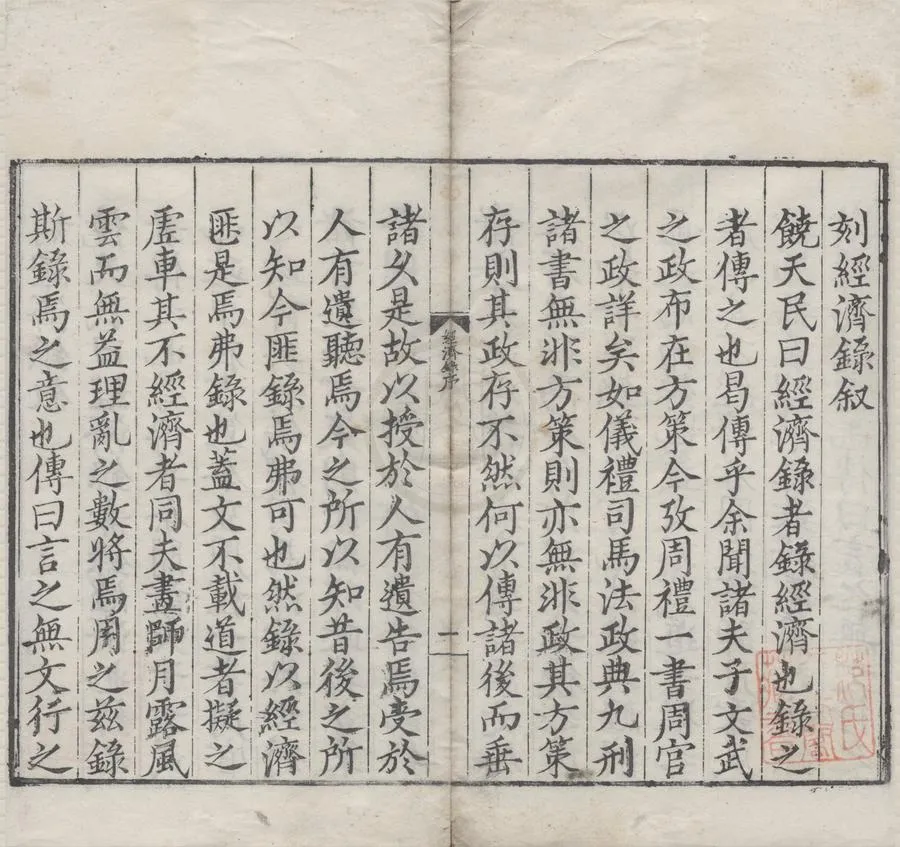 刻經濟錄叙
饒天民曰經濟錄者錄經濟也錄之
者傳之也曷傳乎余聞諸夫子文武
之政布在方策今攷周禮一書周官
之政詳矣如儀禮司馬法政典九刑
諸書無非方策則亦無非政其方策
存則其政存不然何以傳諸後而垂
經濟錄序
一
諸久是故以授於人有遺告焉受於
人有遺聽焉今之所以知昔後之所
以知今匪錄焉弗可也然錄以經濟
匪是焉弗錄也蓋文不載道者擬之
虗車其不經濟者同夫畫師月露風
雲而無益理亂之數將焉用之兹錄
斯錄焉之意也傳曰言之無文行之